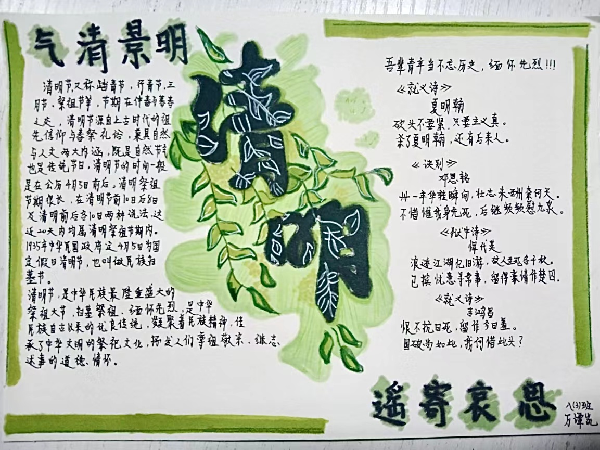 气清景明
清明节,又称踏青节,行青节,三
月节,祭祖节等,节期在仲春与暮春
之交,清明节源自上古时代的祖
先信仰与春祭礼俗,兼具自然
与人文两大内涵,既是自然节气
也是传统节日。清明节的时间一般
是在公历4月5日前后。清明祭祖
节期很长,在清明节前10日后8日
及清明前后各10日两种说法,这
近20天内均属清明祭祖节期内。
1935年中华民国政府定4月5日为国
定假日清明节,也叫做民族扫
墓节。
清明节,是中华民族最隆重盛大的
祭祖大节,扫墓祭祖、缅怀先烈,是中华
民族自古以来的优良传统,凝聚着民族精神,传
承了中华文明的祭祀文化,抒发人们尊祖敬宗、继志
述事的道德、情怀。
清明
吾辈青年当不忘历史,缅怀先烈!!!
《就义诗》
夏明翰
砍头不要紧,只要主义真。
杀了夏明翰,还有后来人。
《诀别》
邓恩铭
卅一年华转瞬间,壮志未酬奈何天。
不惜惟我身先死,后继频频慰九泉。
《狱中诗》
恽代英
浪迹江湖忆旧游,故人生死各千秋。
已摈忧患寻常事,留得豪情作楚囚。
《就义诗》
吉鸿昌
恨不抗日死,留作今日羞。
国破尚如此,我何惜此头?
遥寄哀思
八(3)班